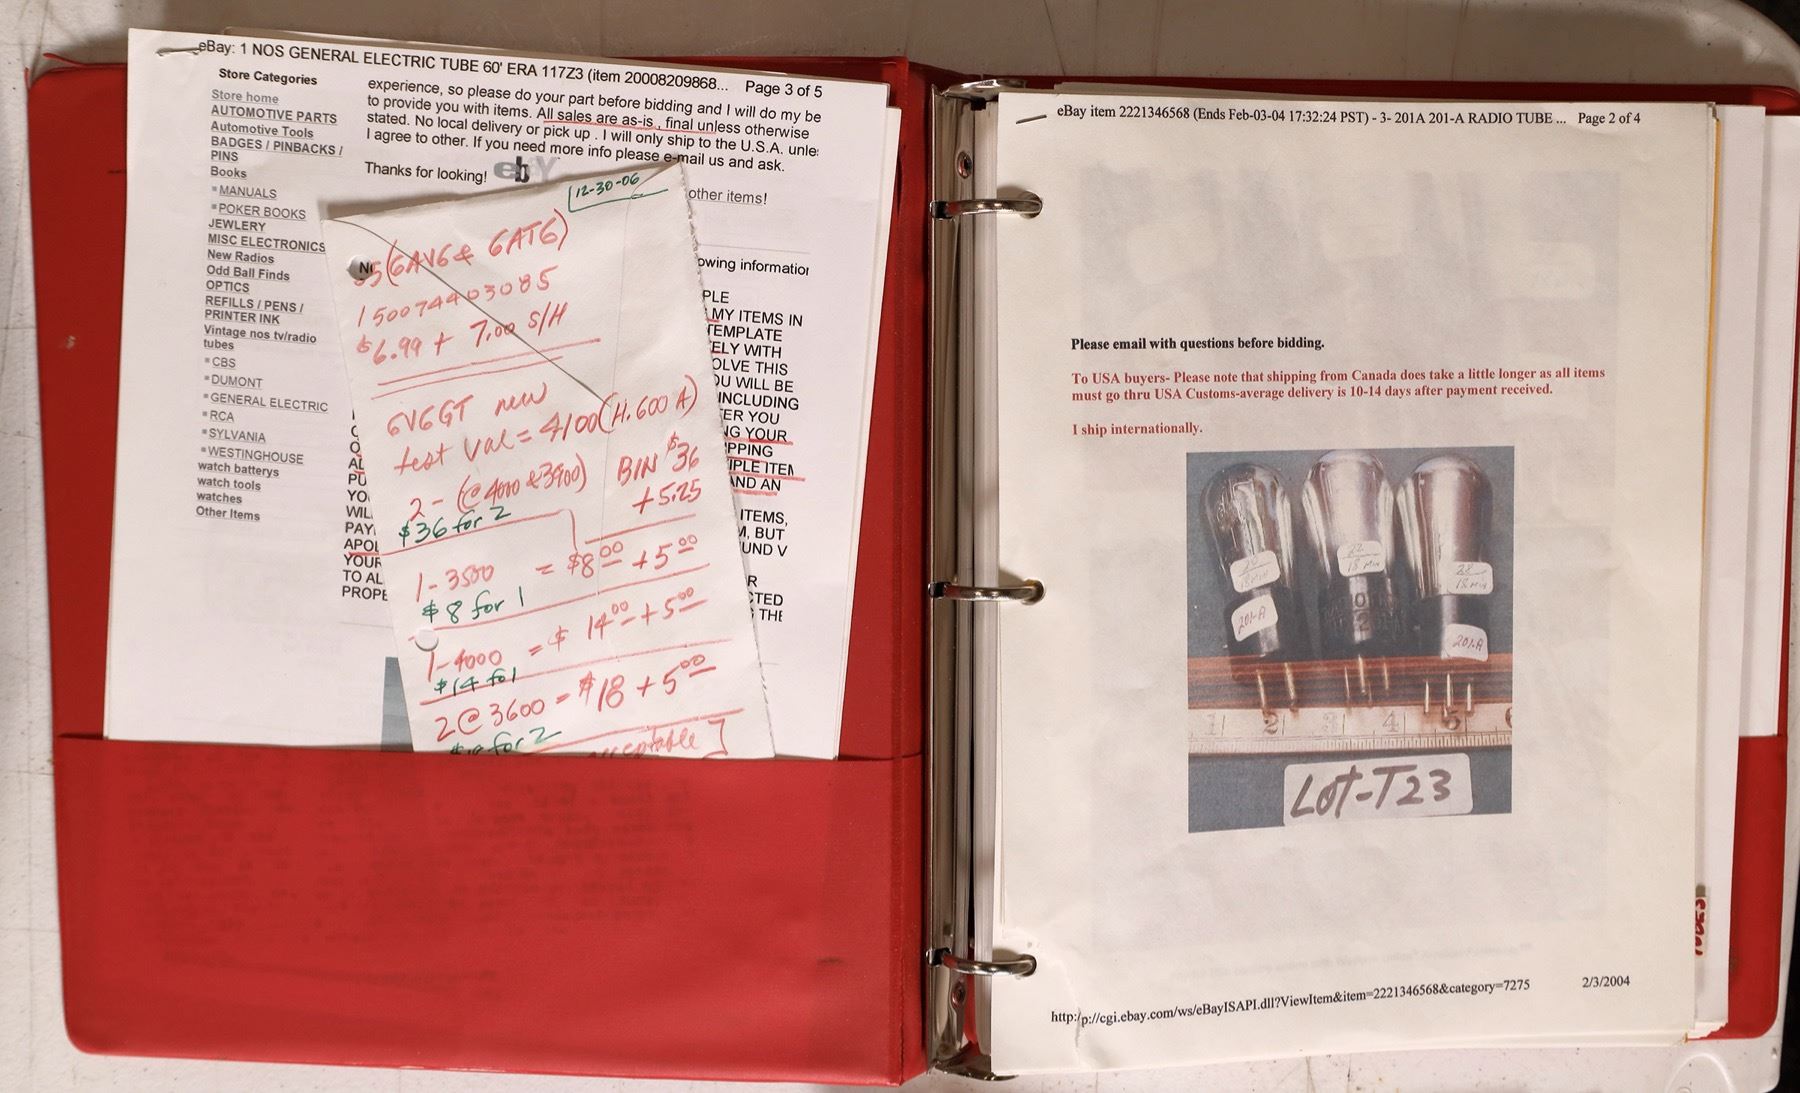 eBay: 1 NOS GENERAL ELECTRIC TUBE 60' ERA 117Z3 (item 20008209868... Page 3 of 5
Store Categories
Store home
AUTOMOTIVE PARTS
Automotive Tools
BADGES / PINBACKS /
PINS
Books
MANUALS
POKER BOOKS
JEWLERY
MISC ELECTRONICS
New Radios
Odd Ball Finds
OPTICS
REFILLS / PENS /
PRINTER INK
Vintage nos tv/radio
tubes
CBS
DUMONT
GENERAL ELECTRIC
RCA
SYLVANIA
WESTINGHOUSE
watch batterys
watch tools
watches
Other Items
experience, so please do your part before bidding and I will do my be
to provide you with items. All sales are as-is , final unless otherwise
stated. No local delivery or pick up . I will only ship to the U.S.A. unle
I agree to other. If you need more info please e-mail us and ask.
Thanks for looking!
other items!
owing information
PLE
MY ITEMS IN
TEMPLATE
ELY WITH
OLVE THIS
OU WILL BE
INCLUDING
ER YOU
NG YOUR
PPING
IPLE ITEM
AND AN
ITEMS,
M, BUT
UND V
R
CTED
THE
AL
PU
YO
WIL
PAY
APOL
YOUR
TO AL
PROPE
12-30-06
(6AV6 & 6AT6)
150074403085
$6.99 + 7.00 S/H
6V6GT new
test val = 4100 (H. 600 A)
2 - (@ 4000 & 3900) BIN $36
$36 for 2 +5.25
1-3500 = $8.00 + 5.00
$8 for 1
1-4000 = $ 14.00 + 5.00
$14 fo 1
2 @ 3600 = $18 + 5.00
for 2
acceptable]
eBay item 2221346568 (Ends Feb-03-04 17:32:24 PST) - 3- 201A 201-A RADIO TUBE ... Page 2 of 4
Please email with questions before bidding.
To USA buyers- Please note that shipping from Canada does take a little longer as all items
must go thru USA Customs-average delivery is 10-14 days after payment received.
I ship internationally.
22
18 MIN
28
18 MIN
201-A
201-A
1 2 3 4 5 6
LOT-T23
http://cgi.ebay.com/ws/eBayISAPI.dll?ViewItem&item=2221346568&category=7275 2/3/2004
TUBES